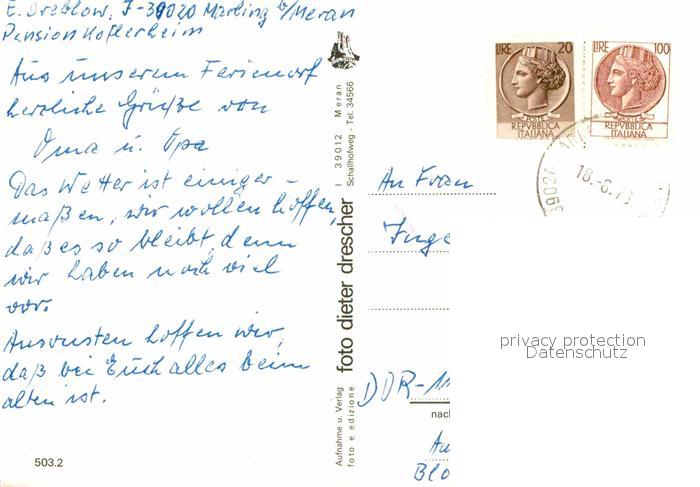 E. Dreblow, I-39020 Marling b/Meran
Pension Koflerheim
Aus unserem Feriendorf
herzliche Grüße von
Oma u. Opa
Das Wetter ist einiger-
maßen, wir wollen hoffen,
daß es so bleibt, denn
wir haben noch viel
vor.
Ansonsten hoffen wir,
daß bei Euch alles beim
alten ist.
503.2
Aufnahme u. Verlag
foto e edizione
foto dieter drescher
I 39012 Meran
Schallhofweg - Tel. 34566
LIRE 20
POSTE
REPVBBLICA
ITALIANA
LIRE 100
POSTE
REPVBBLICA
ITALIANA
39020
18.-6.7
An Frau
Inge
DDR-11
nach
Au
Blo
privacy protection
Datenschutz